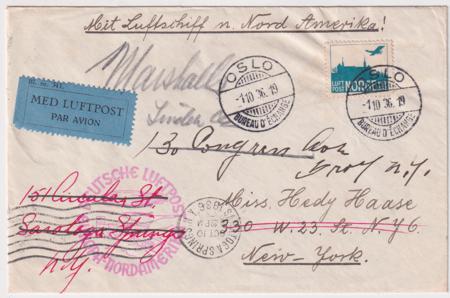 Mit Luftschiff n. Nord Amerika!
Marshall
OSLO
-1 10 36. 19
BUREAU D'ÉCHANGE
LUFT
POST NORGE
OSLO
-1 10 36. 19
BUREAU D'ÉCHANGE
MED LUFTPOST
PAR AVION
130 Congress Ave
Troy N.Y.
DEUTSCHE LUFTPOST
NORDAMERIKA
151 Circular St.
Saratoga Springs
N.Y.
SARATOGA SPRINGS, N.Y.
OCT 10
1936
Miss, Hedy Haase
330 W. 23. St. N.Y. 6.
New-York.